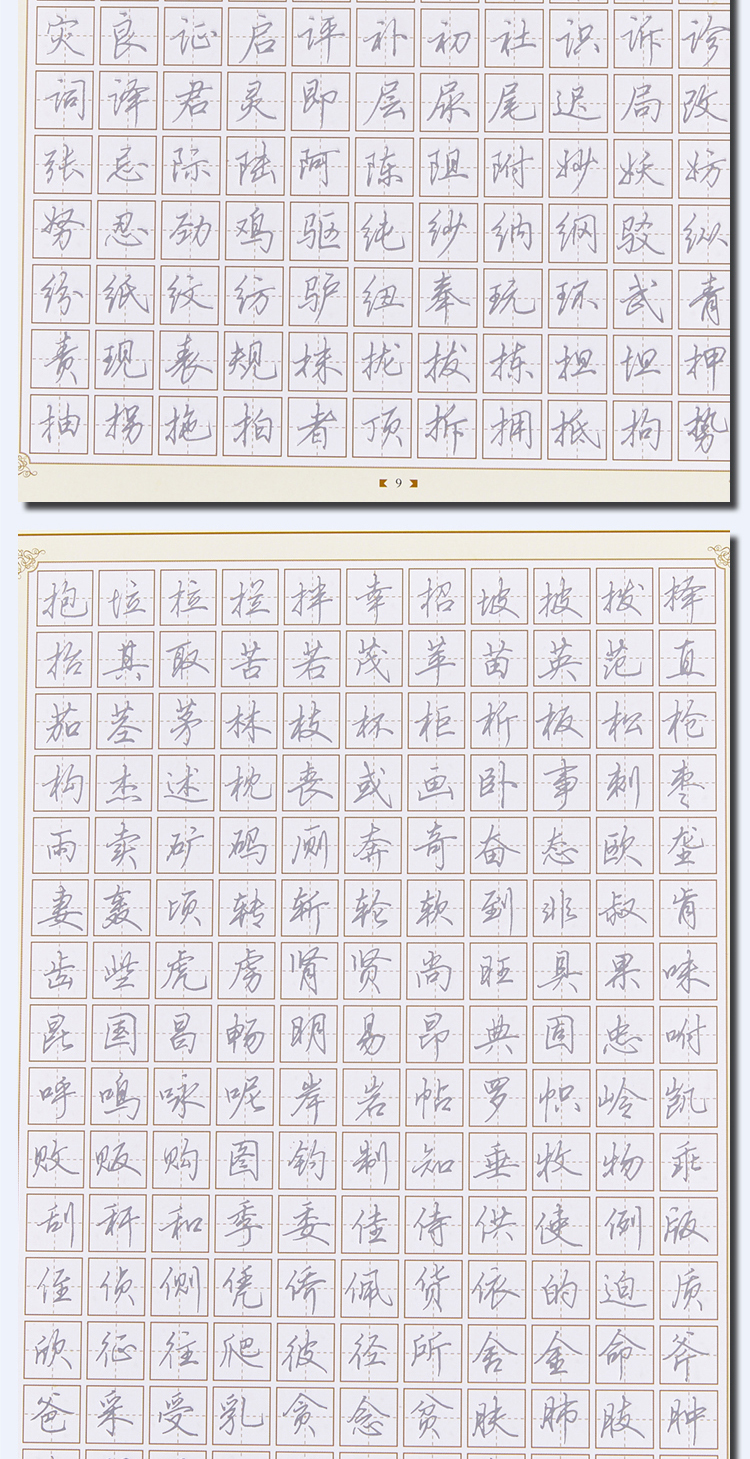 灾良证启评补初社识诉诊
词译君灵即层尿尾迟局改
张忌际陆阿陈阻附妙妖妨
努忍劲鸡驱纯纱纳纲驳纵
纷纸纹纺驴纽奉玩环武青
责现表规抹拢拔拣担坦押
抽拐拖拍者顶拆拥抵拘势
9
抱垃拉拦拌幸招坡披拨择
抬其取苦若茂苹苗英范直
茄茎茅林枝杯柜析板松枪
构杰述枕丧或画卧事刺枣
雨卖矿码厕奔奇奋态欧垄
妻轰顷转斩轮软到非叔肯
齿些虎虏肾贤尚旺具果味
昆国昌畅明易昂典固忠咐
呼鸣咏呢岸岩帖罗帜岭凯
败贩购图钓制知垂牧物乖
刮秆和季委佳侍供使例版
侄侦侧凭侨佩货依的迫质
欣征往爬彼径所舍金命斧
爸采受乳贪念贫肤肺肢肿